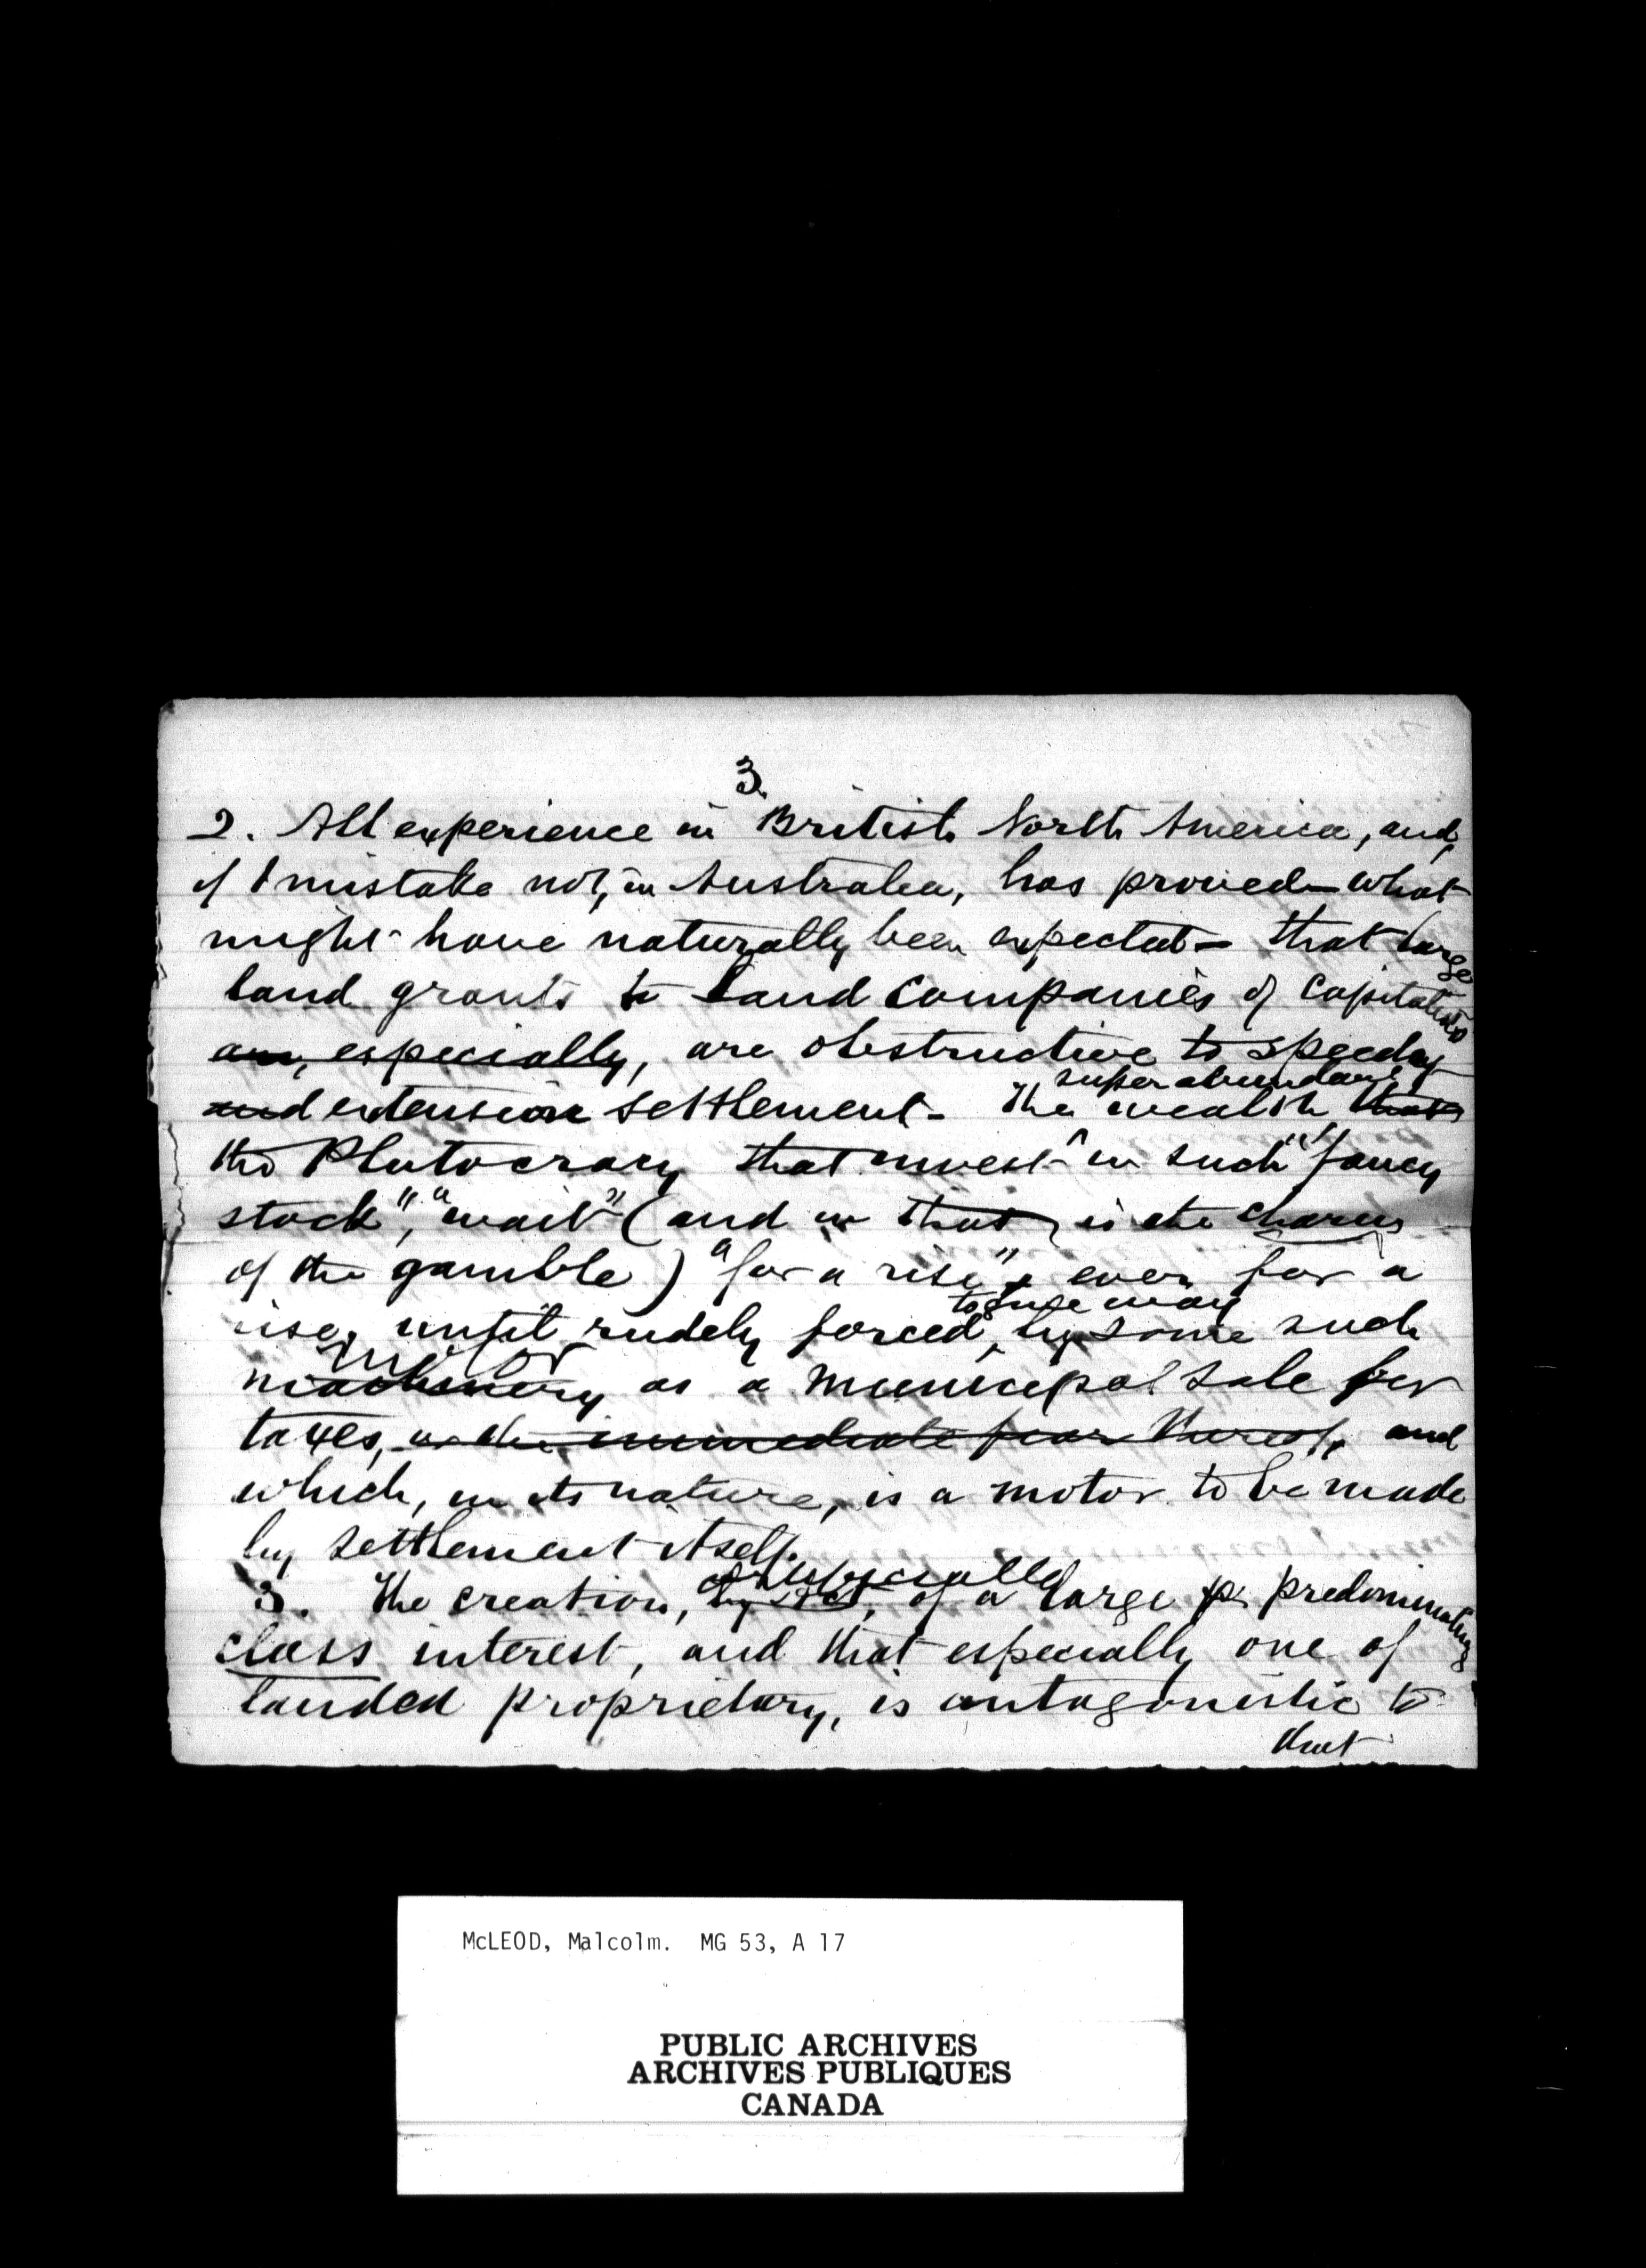 3.
2. All experience in British North America, and,
if I mistake not, in Australia, has proved — what
might have naturally been expected — that large
land grants to Land Companies of Capitalists
especially, are obstructive to speedy
and extension settlement. The wealth that
superabundant
the Plutocracy that invest in such "fancy
stock", "wait" (and in that, is the charm
of the gamble) "for a rise", ever for a
rise, until rudely forced, by some such
to give way
motor
machinery as a municipal sale for
taxes, or the immediate fear thereof, and
which, in its nature, is a motor to be made
by settlement itself.
artificially
3. The creation, by Act, of a large p predominating
class interest, and that especially one of
landed proprietary, is antagonistic to
that
McLEOD, Malcolm. MG 53, A 17
PUBLIC ARCHIVES
ARCHIVES PUBLIQUES
CANADA